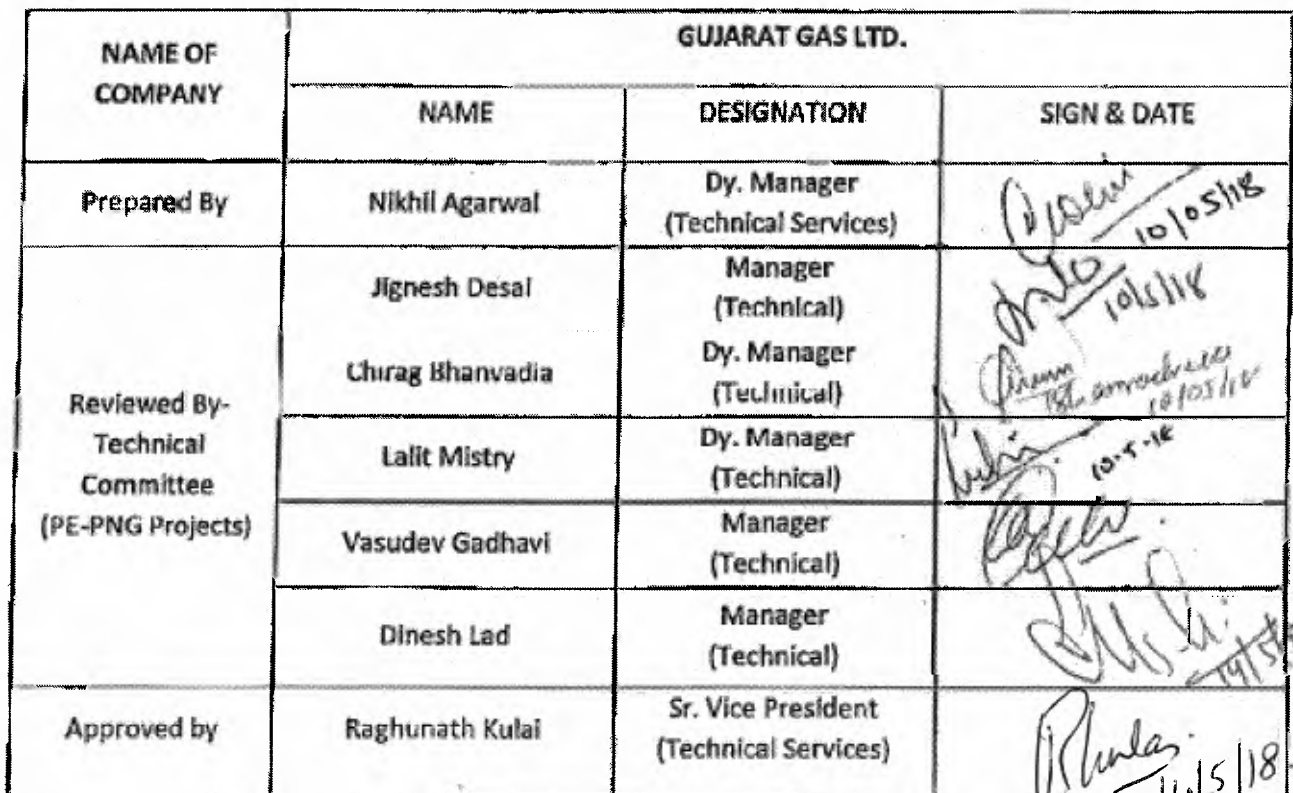 NAME OF
COMPANY
GUJARAT GAS LTD.
NAME
DESIGNATION
SIGN & DATE
Prepared By
Nikhil Agarwal
Dy. Manager
(Technical Services)
10/05/18
Reviewed By-
Technical
Committee
(PE-PNG Projects)
Jignesh Desai
Manager
(Technical)
10/5/18
Chirag Bhanvadia
Dy. Manager
(Technical)
10/05/18
Lalit Mistry
Dy. Manager
(Technical)
10-5-18
Vasudev Gadhavi
Manager
(Technical)
Dinesh Lad
Manager
(Technical)
Approved by
Raghunath Kulai
Sr. Vice President
(Technical Services)